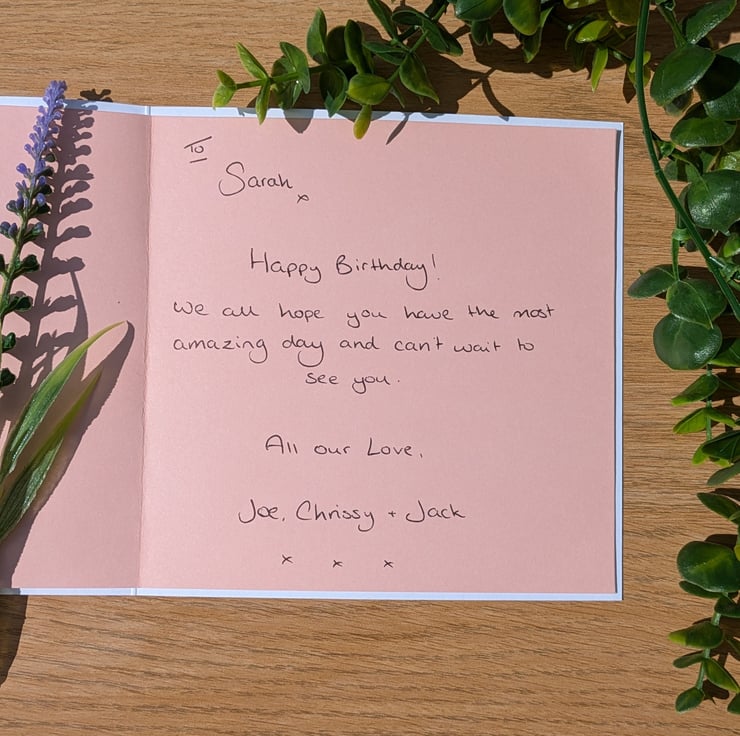 To
Sarah x
Happy Birthday!
we all hope you have the most
amazing day and can't wait to
see you.
All our Love,
Joe, Chrissy + Jack
x x x